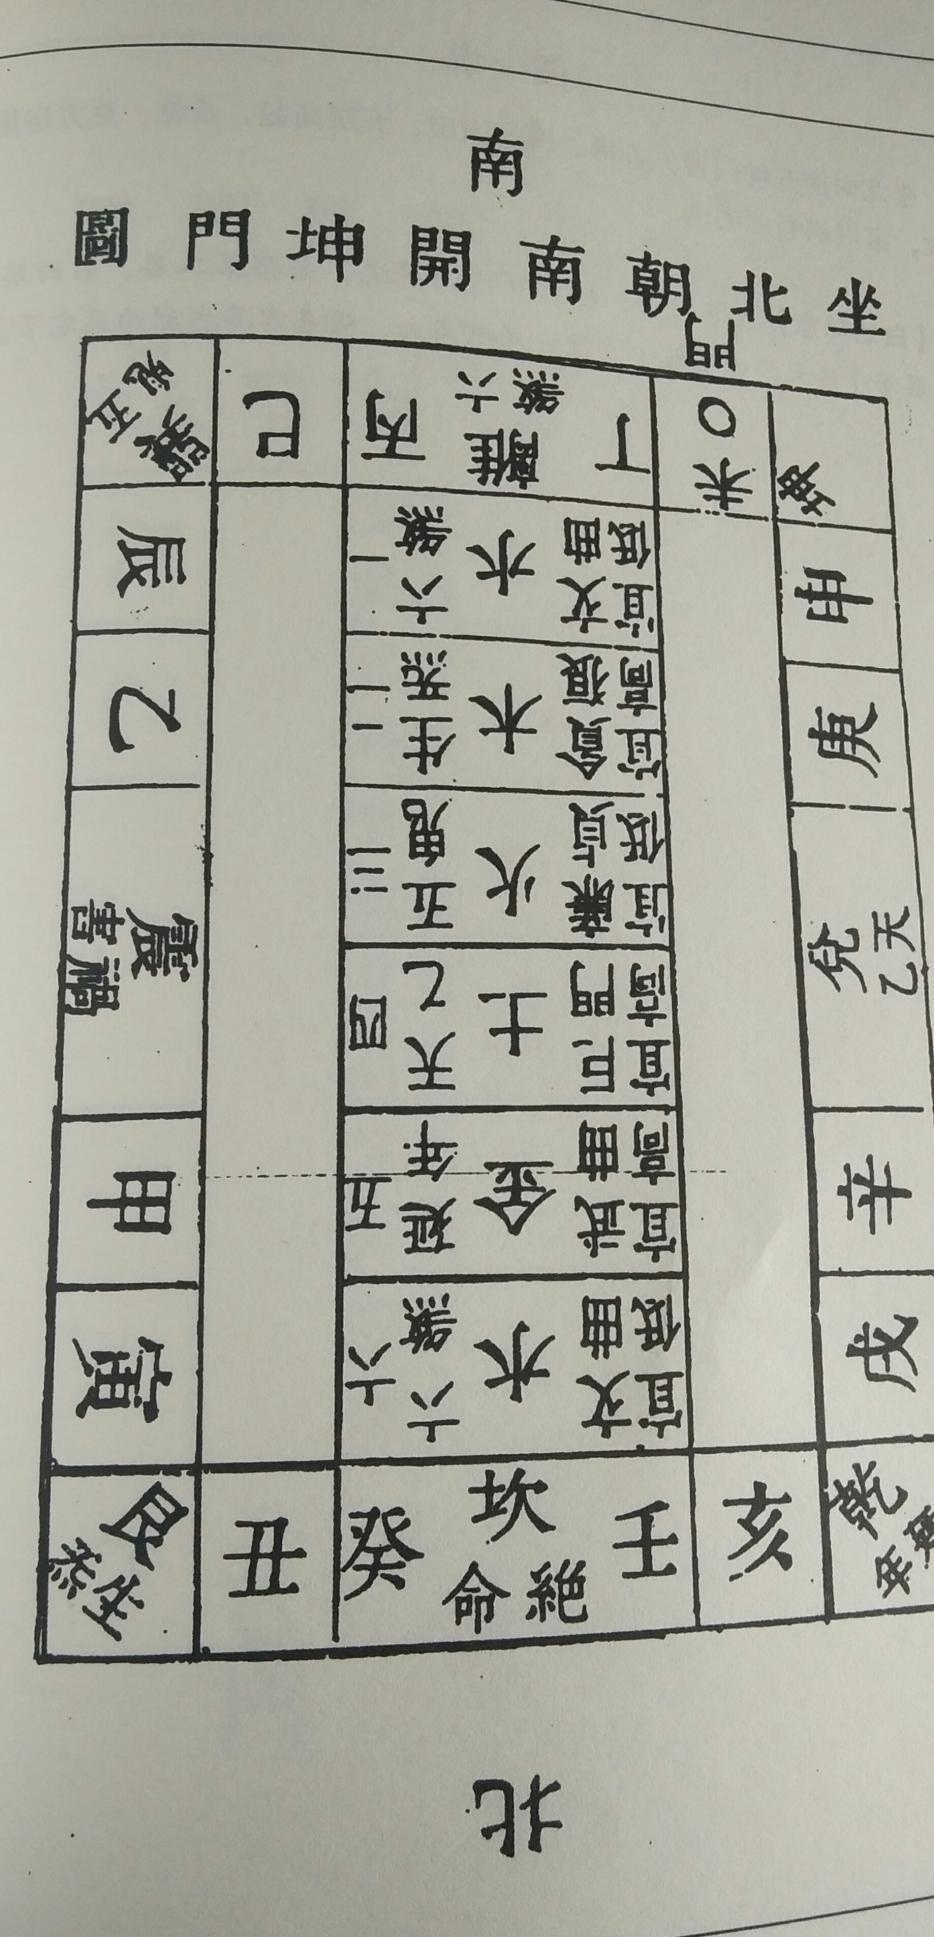 南
坐北朝南開坤門圖
門
巽
五鬼
巳
丙
六煞
離
丁
○
未
坤
辰
乙
震
禍害
甲
寅
一
六煞
水
文曲
宜低
二
生炁
木
貪狼
宜高
三
五鬼
火
廉貞
宜低
四
天乙
土
巨門
宜高
五
延年
金
武曲
宜高
六
六煞
水
文曲
宜低
申
庚
兌
天乙
辛
戌
艮
生炁
丑
癸
坎
壬
絶命
亥
乾
北